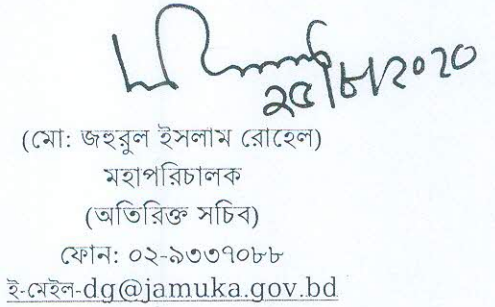 ২৫/৮/২০২০
(মো: জহুরুল ইসলাম রোহেল)
মহাপরিচালক
(অতিরিক্ত সচিব)
ফোন: ০২-৯৩৩৭০৮৮
ই-মেইল-dg@jamuka.gov.bd